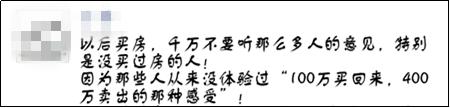 以后买房，千万不要听那么多人的意见，特别
是没买过房的人！
因为那些人从来没体验过“100万买回来，400
万卖出的那种感受”！